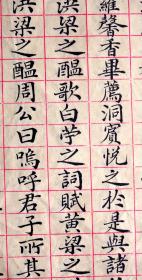 羅馨香畢薦洞賓悅之於是與諸
洪梁之醖歌白苧之詞賦黃梁之
洪梁之醖周公曰嗚呼君子所其